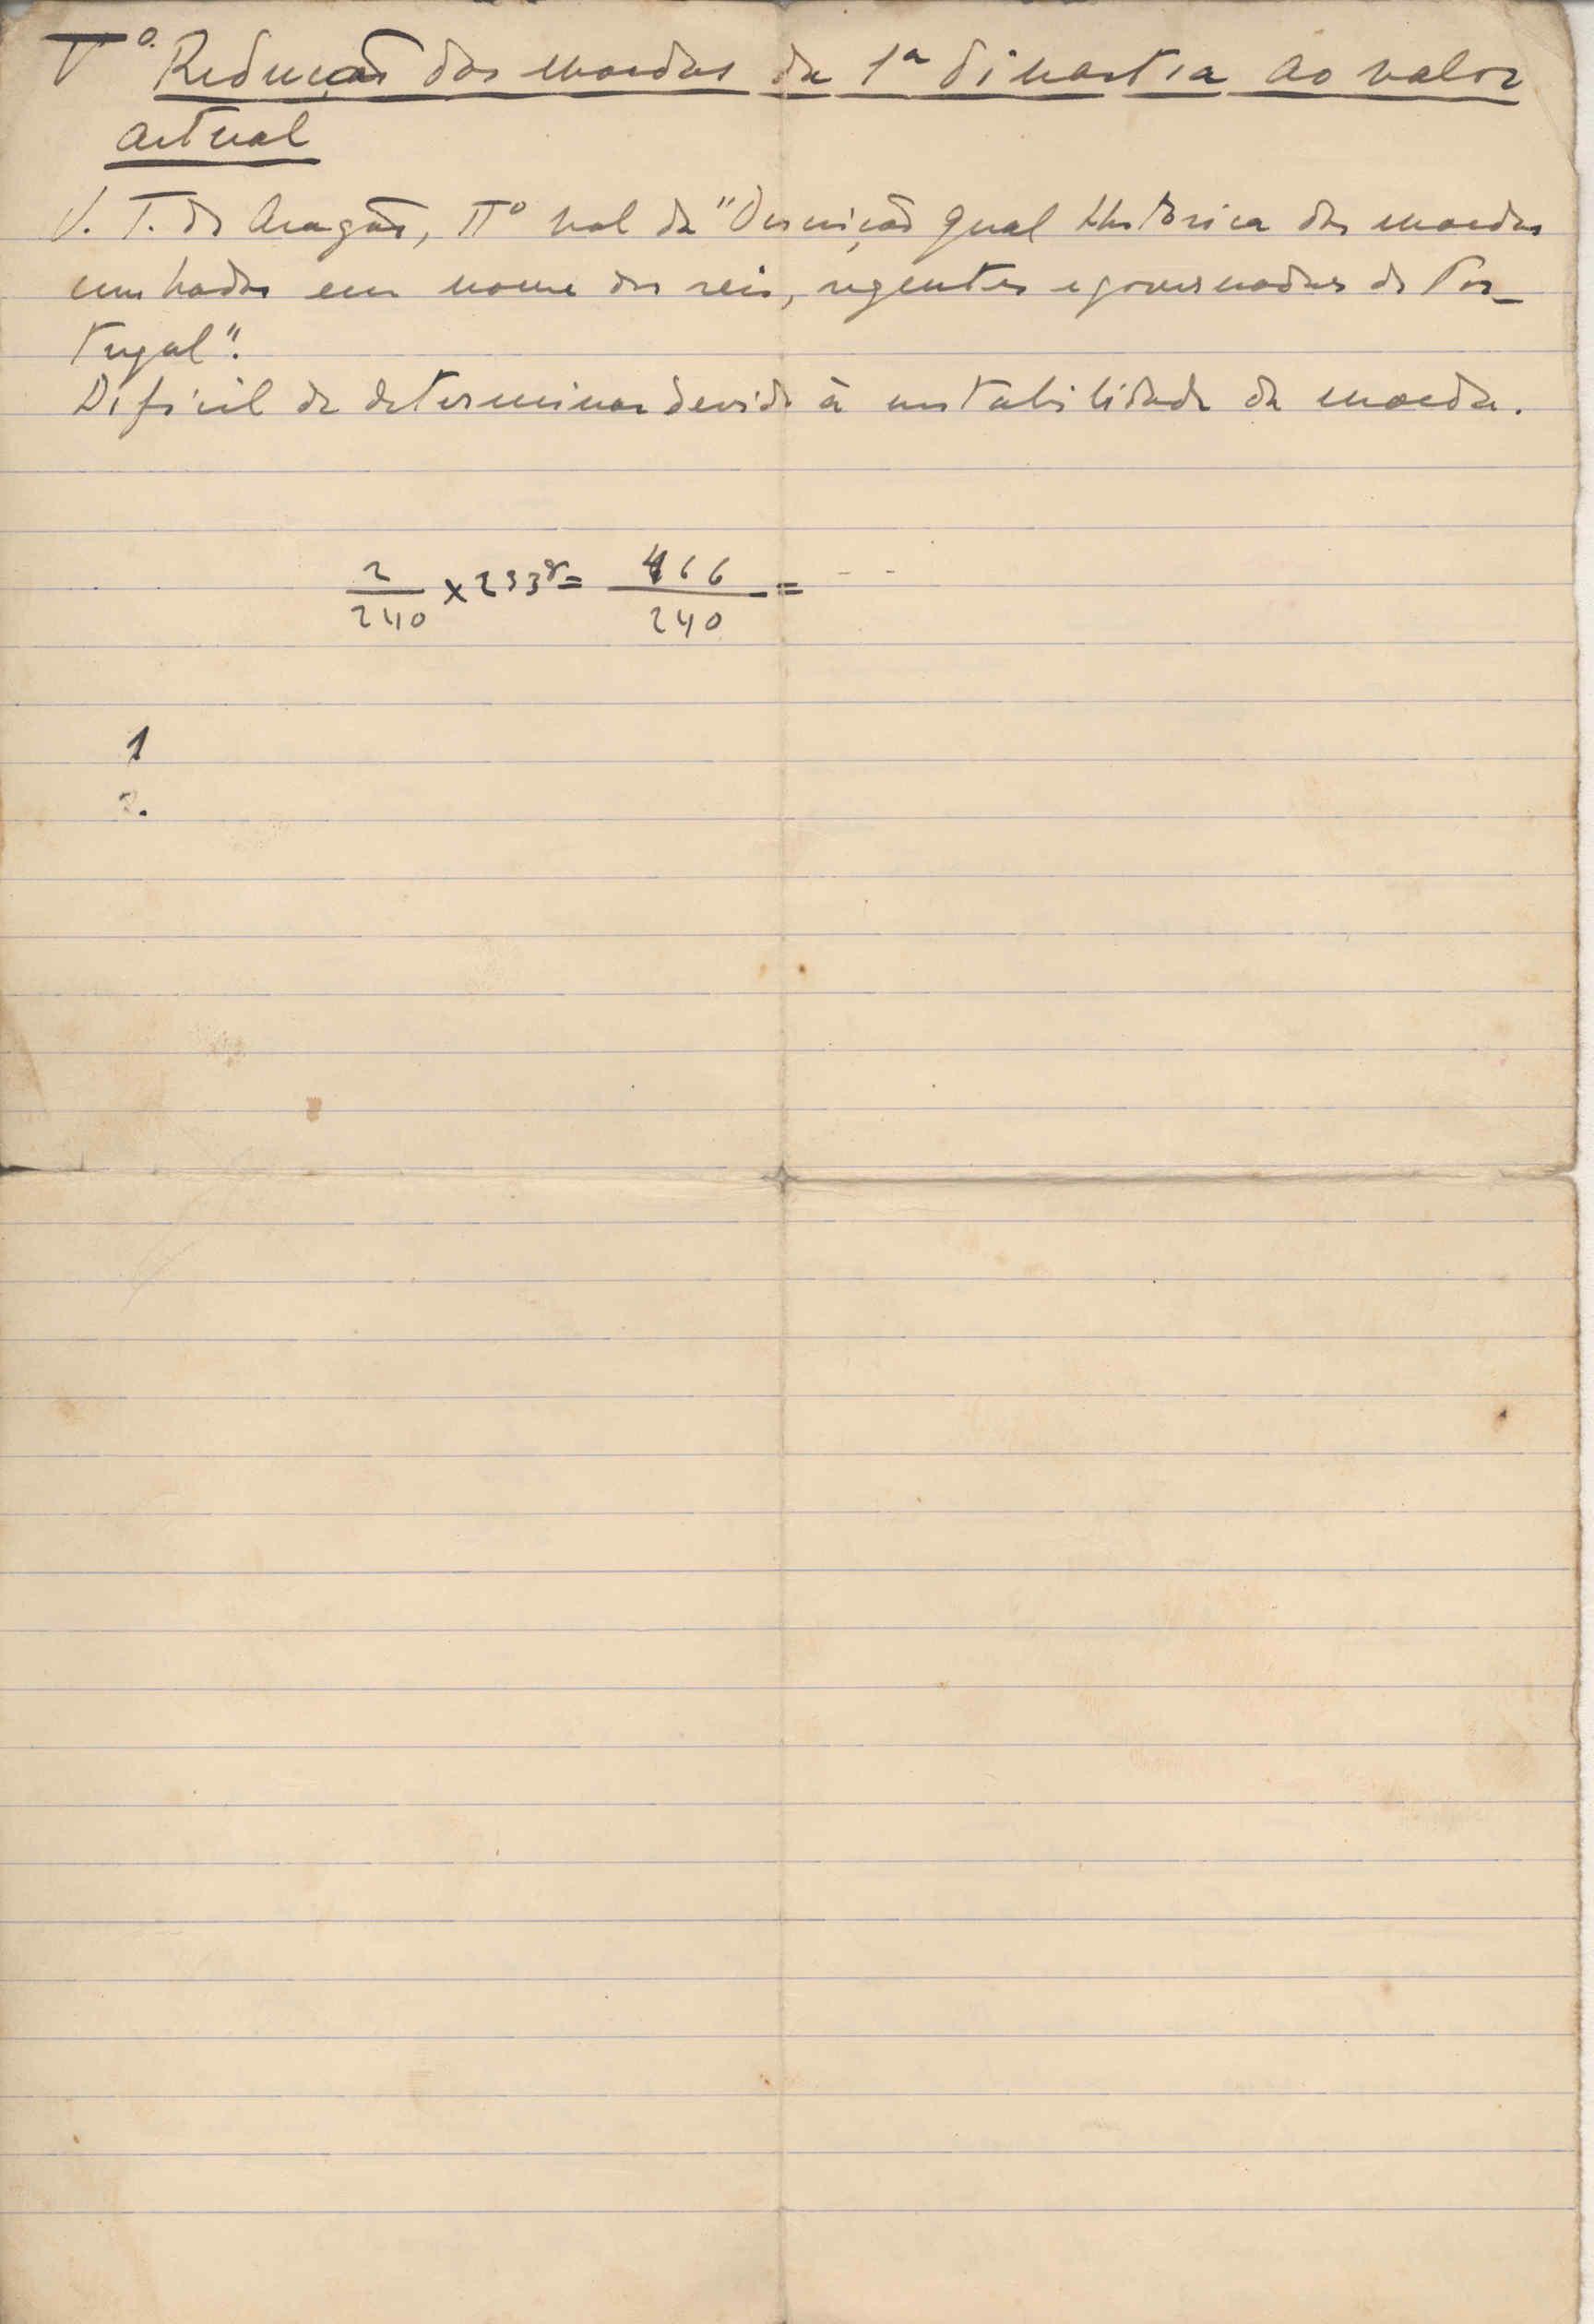 Vº. Redução das moedas da 1ª dinastia ao valor
actual
V. T. de Aragão, IIº vol da "Descrição geral histórica das moedas
cunhadas em nome dos reis, regentes e governadores de Por_
tugal".
Difícil de determinar devido à instabilidade da moeda.
2/240 x 233 = 466/240 = - -
1
2.